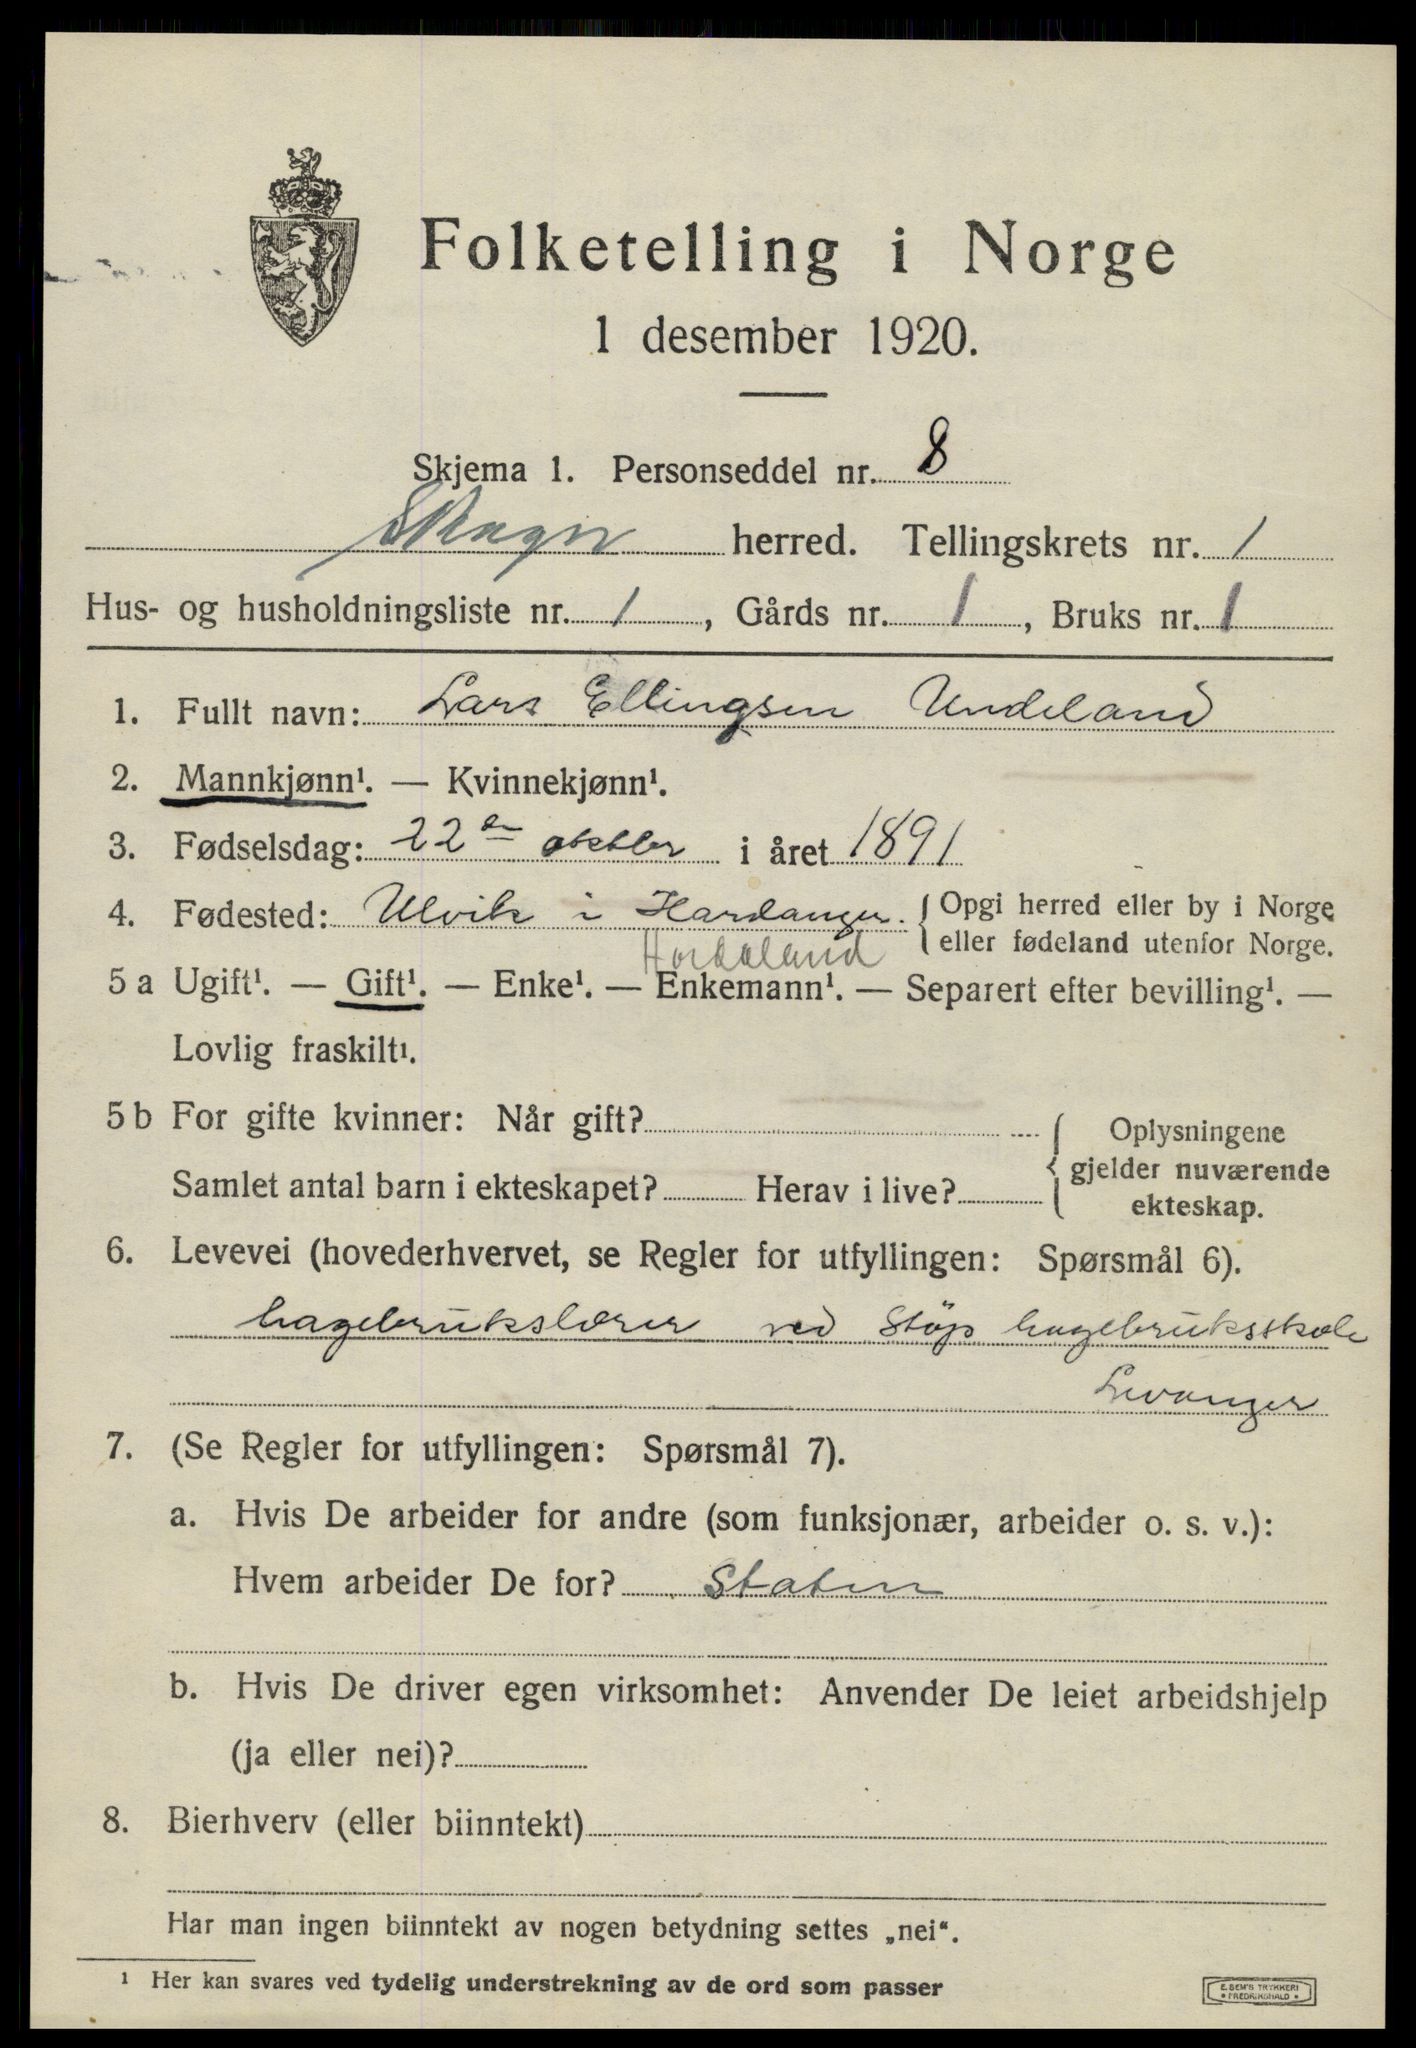 Folketelling i Norge
1 desember 1920.
Skjema 1. Personseddel nr. 8
Skogn herred. Tellingskrets nr. 1
Hus- og husholdningsliste nr. 1, Gårds nr. 1, Bruks nr. 1
1. Fullt navn: Lars Ellingsen Undeland
2. Mannkjønn¹. — Kvinnekjønn¹.
3. Fødselsdag: 22 de oktbr i året 1891
4. Fødested: Ulvik i Hardanger. { Opgi herred eller by i Norge
eller fødeland utenfor Norge.
Hordaland
5 a Ugift¹. — Gift¹. — Enke¹. — Enkemann¹. — Separert efter bevilling¹. —
Lovlig fraskilt¹.
5 b For gifte kvinner: Når gift? { Oplysningene
gjelder nuværende
Samlet antal barn i ekteskapet? Herav i live?
ekteskap.
6. Levevei (hovederhvervet, se Regler for utfyllingen: Spørsmål 6).
hagebrukslærer ved Støp hagebruksskole
Levanger
7. (Se Regler for utfyllingen: Spørsmål 7).
a. Hvis De arbeider for andre (som funksjonær, arbeider o. s. v.):
Hvem arbeider De for? Staten
b. Hvis De driver egen virksomhet: Anvender De leiet arbeidshjelp
(ja eller nei)?
8. Bierhverv (eller biinntekt)
Har man ingen biinntekt av nogen betydning settes „nei“.
¹ Her kan svares ved tydelig understrekning av de ord som passer
E. SEM'S TRYKKERI
• FREDRIKSHALD •